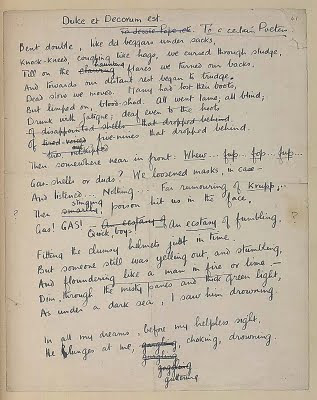 Dulce et Decorum est.
To Jessie Pope etc. To a certain Poetess
Bent double, like old beggars under sacks,
Knock-kneed, coughing like hags, we cursed through sludge,
haunting
Till on the flares we turned our backs,
And towards our distant rest began to trudge.
Dead slow we moved. Many had lost their boots,
But limped on, blood-shod. All went lame; all blind;
Drunk with fatigue; deaf even to the hoots
Of disappointed shells that dropped behind.
Of tired-voiced five-nines that dropped behind.
outstripped
Then somewhere near in front: Whew... fup... fop... fup...
Gas-shells or duds? We loosened masks, in case—
And listened... Nothing... Far rumouring of Krupp,..
stinging
Then poison hit us in the face,
Gas! GAS! An ecstasy of An ecstasy of fumbling,
Quick, boys!
Fitting the clumsy helmets just in time.
But someone still was yelling out, and stumbling,
And floundering like a man in fire or lime —
Dim, through the misty panes and thick green light,
As under a dark sea, I saw him drowning.
In all my dreams, before my helpless sight,
He plunges at me, choking, drowning.
gargling
goggling
guttering